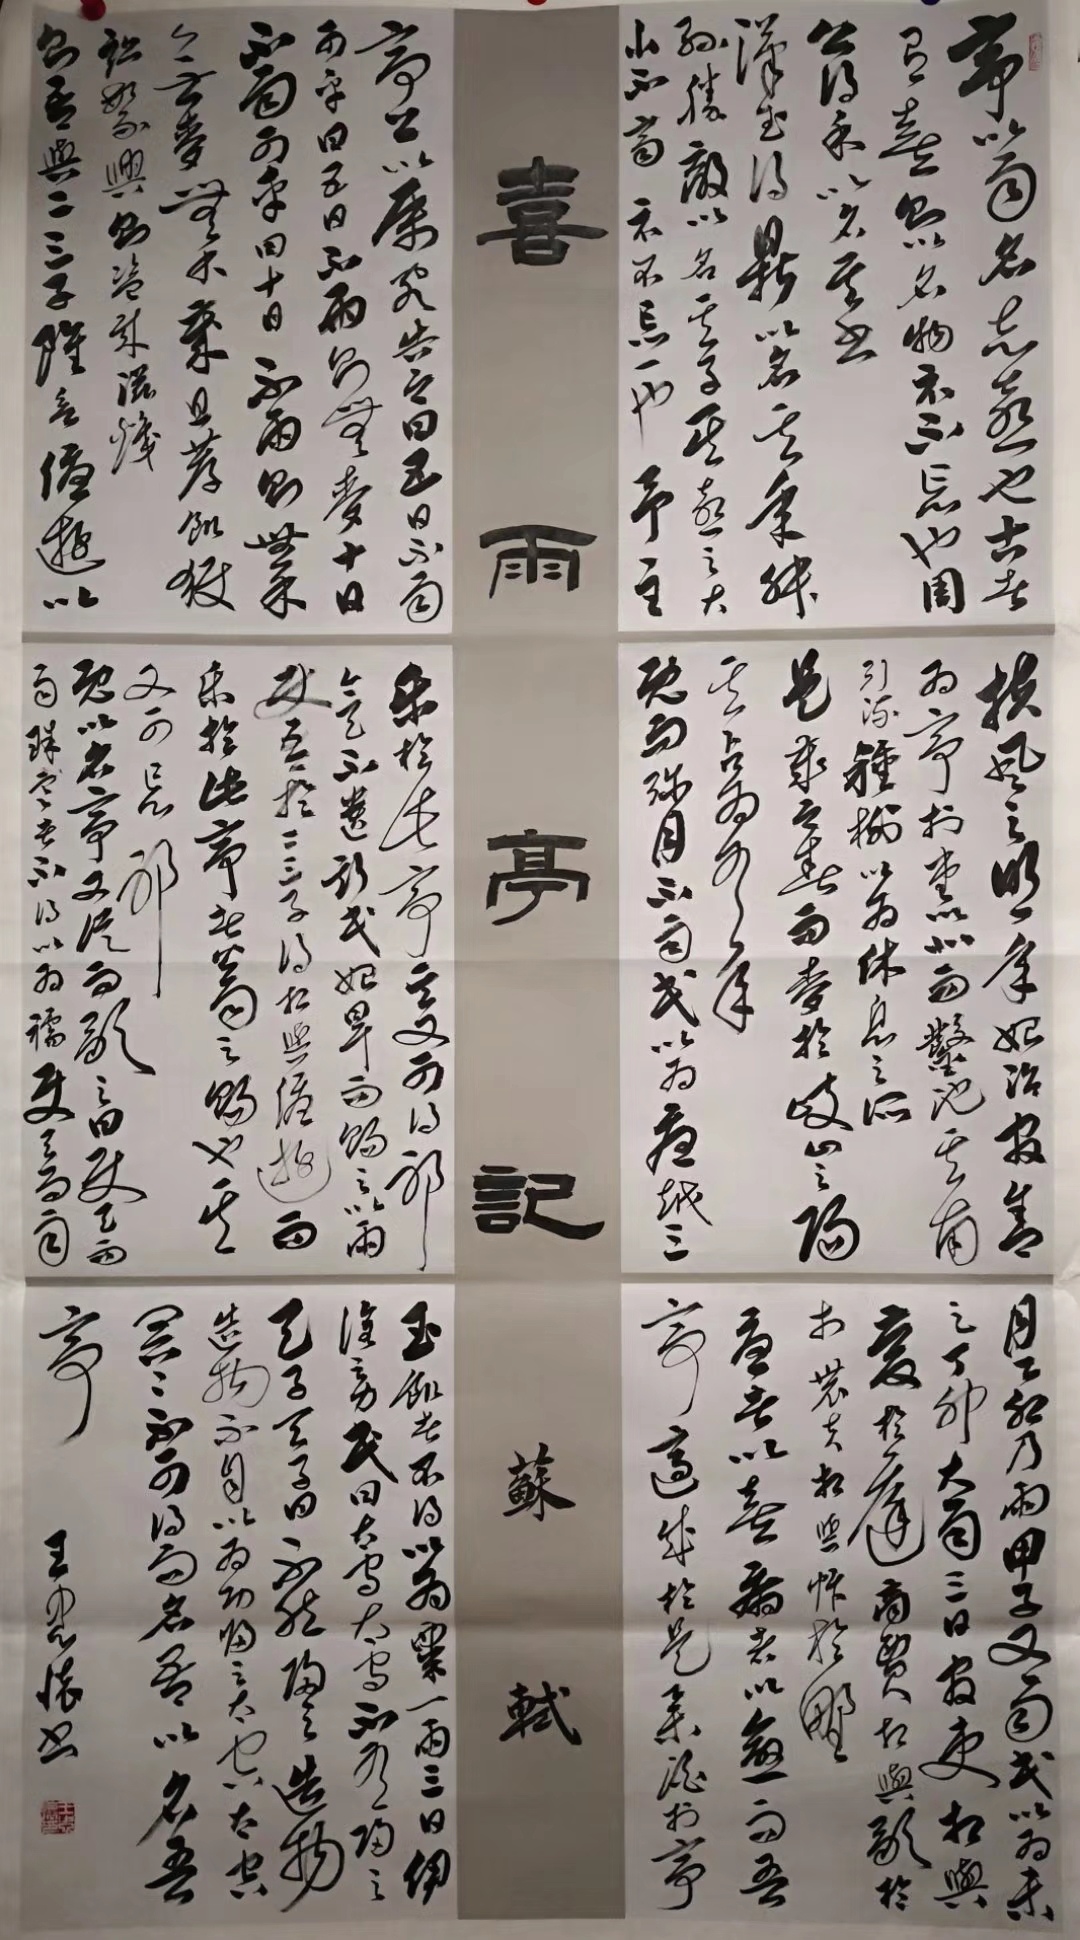 喜雨亭記
蘇軾
亭以雨名志喜也古者
有喜則以名物示不忘也周
公得禾以名其書
漢武得鼎以名其年叔
孫勝敵以名其子其喜之大
小不齊示不忘一也予至
扶風之明年始治官舍
為亭於堂以北而鑿池其南
引流種樹以為休息之所
是歲之春雨麥於岐山之陽
其占為有年
既而彌月不雨民以為憂越三
月乙卯乃雨甲子又雨民以為未
足丁卯大雨三日官吏相與
慶於庭商賈相與歌於
市農夫相與忭於野
憂者以喜病者以愈而吾
亭適成於是舉酒於亭
亭上以屬客告之曰五日不雨
可乎曰五日不雨則無麥十日
不雨可乎曰十日不雨則無禾
無麥無禾歲且荐饑獄
訟繁興則盜賊滋熾
則吾與二三子雖欲優遊以
樂於此亭其又可得耶
今天不遺斯民始旱而賜之以雨
使吾於二三子得相與優遊而
樂於此亭者皆雨之賜也其
又可忘耶
既以名亭又從而歌之曰使天而
雨珠寒者不得以為襦使天而雨
玉饑者不得以為粟一雨三日伊
誰之力民曰太守太守不有歸之
天子天子曰不然歸之造物
造物不自以為功歸之太空太空
冥冥不可得而名吾以名吾
亭
王忠懷書